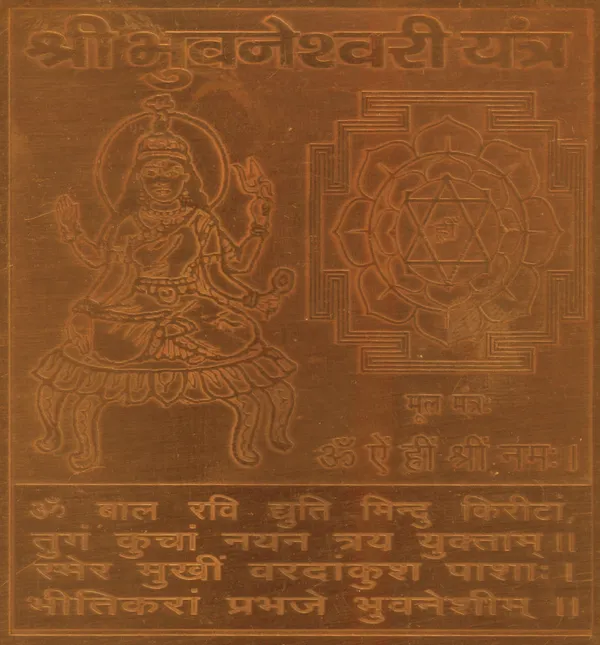 श्री भुवनेश्वरी यंत्र
मूल मंत्रः
ॐ ऐं ह्रीं श्रीं नमः।
ॐ बाल रवि द्युति मिन्दु किरीटां
तुगं कुचां नयन त्रय युक्ताम् ॥
स्मेर मुखीं वरदांकुश पाशाः।
भीतिकरां प्रभजे भुवनेशीम् ॥